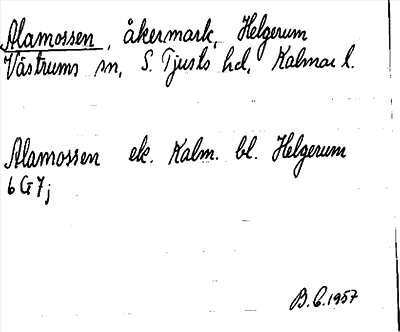 Alamossen, åkermark, Helgerum
Västrums sn, S. Tjusts hd, Kalmar l.
Alamossen ek. Kalm. bl. Helgerum
6 G 7 j
B. C. 1957